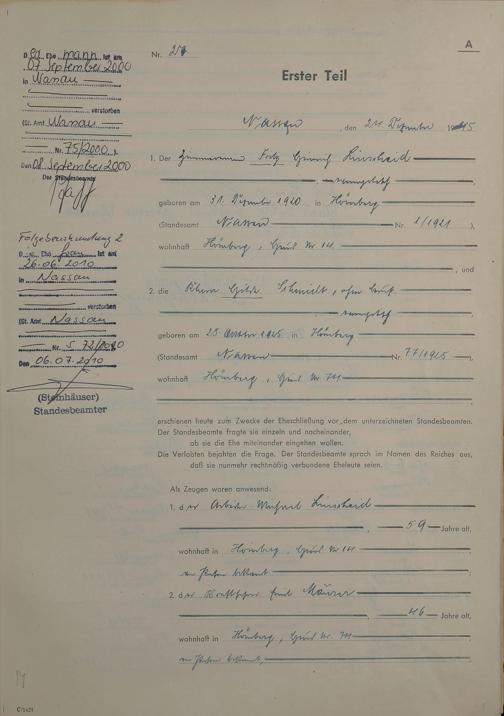 A
Nr. 21
Erster Teil
Nassau, den 21. Dezember 1945
1. Der Zimmermann Fritz Heinrich Linscheid
evangelisch
geboren am 31. Dezember 1920 in Hömberg
(Standesamt Nassau Nr. 1/1921),
wohnhaft Hömberg, Haus Nr. 14
, und
2. die Hilda Schmidt, ohne Beruf
evangelisch
geboren am 25. 1925 in Hömberg
(Standesamt Nassau Nr. 77/1925),
wohnhaft Hömberg, Haus Nr.
erschienen heute zum Zwecke der Eheschließung vor dem unterzeichneten Standesbeamten.
Der Standesbeamte fragte sie einzeln und nacheinander,
ob sie die Ehe miteinander eingehen wollen.
Die Verlobten bejahten die Frage. Der Standesbeamte sprach im Namen des Reiches aus,
daß sie nunmehr rechtmäßig verbundene Eheleute seien.
Als Zeugen waren anwesend:
1. der Arbeiter Linscheid
, 59 Jahre alt,
wohnhaft in Hömberg, Haus Nr. 14
von Person bekannt
2. der Emil Mäurer
, 46 Jahre alt,
wohnhaft in Hömberg, Haus Nr.
von Person bekannt,
Der Ehemann ist am
07. September 2000
in Nanau
verstorben
(St. Amt Nanau
Nr. 75/2000).
Den 08. September 2000
Der Standesbeamte
Folgebeurkundung 2
D. Ehefrau ist am
26.06.2010
in Nassau
verstorben
(St. Amt Nassau
Nr. S 72/2010
Den 06.07.2010
(Steinhäuser)
Standesbeamter
C/1621